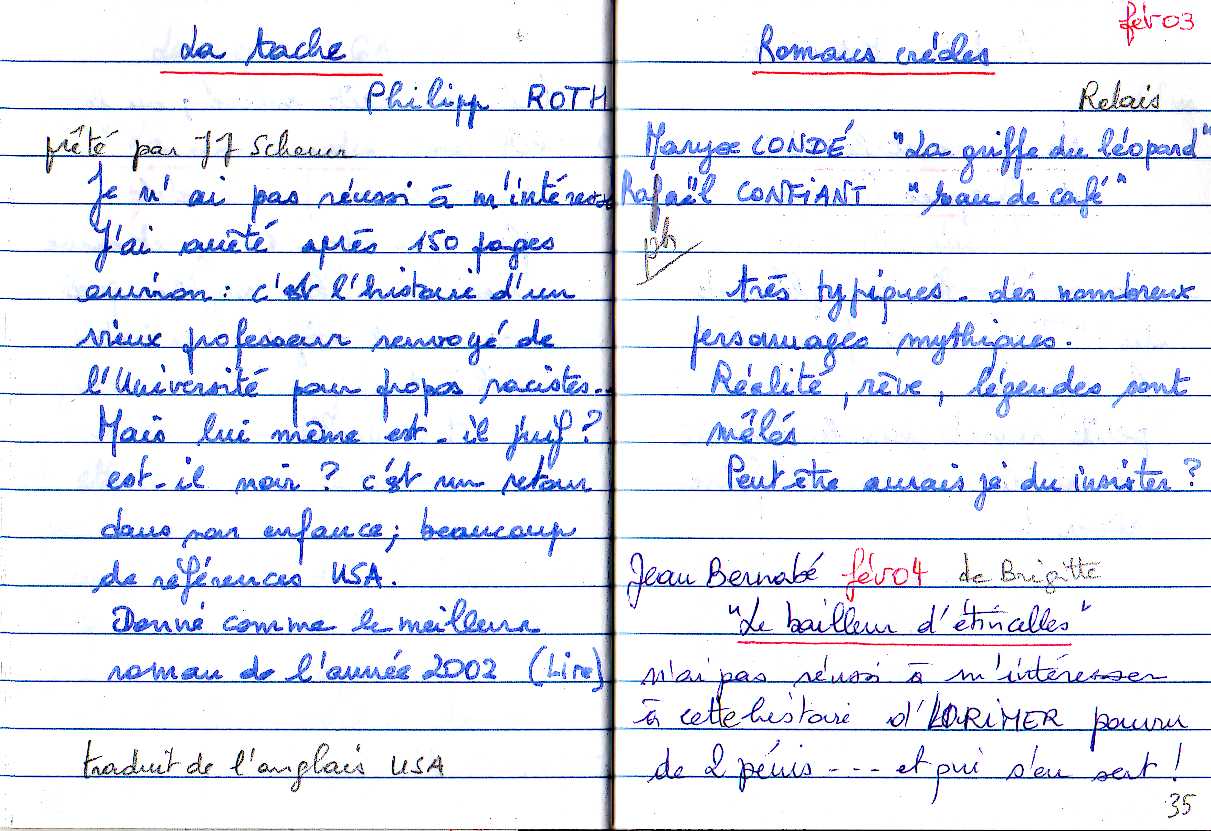 La tache
Philipp ROTH
prêté par JJ Scheurer
Je n'ai pas réussi à m'intéresser
J'ai arrêté après 150 pages
environ : c'est l'histoire d'un
vieux professeur renvoyé de
l'Université pour propos racistes..
Mais lui même est-il juif ?
est-il noir ? c'est un retour
dans son enfance ; beaucoup
de références USA.
Donné comme le meilleur
roman de l'année 2002 (Lire)
traduit de l'anglais USA
fév 03
Romans créoles
Relais
Maryse CONDÉ "La griffe du léopard"
Rafaël CONFIANT "eau de café"
ph
très typiques - des nombreux
personnages mythiques.
Réalité, rêve, légendes sont
mêlés
Peut être aurais je du insister ?
Jean Bernabé fév 04 de Brigitte
"Le bailleur d'étincelles"
n'ai pas réussi à m'intéresser
à cette histoire d'LORIMER pourvu
de 2 pénis --- et qui s'en sert !
35